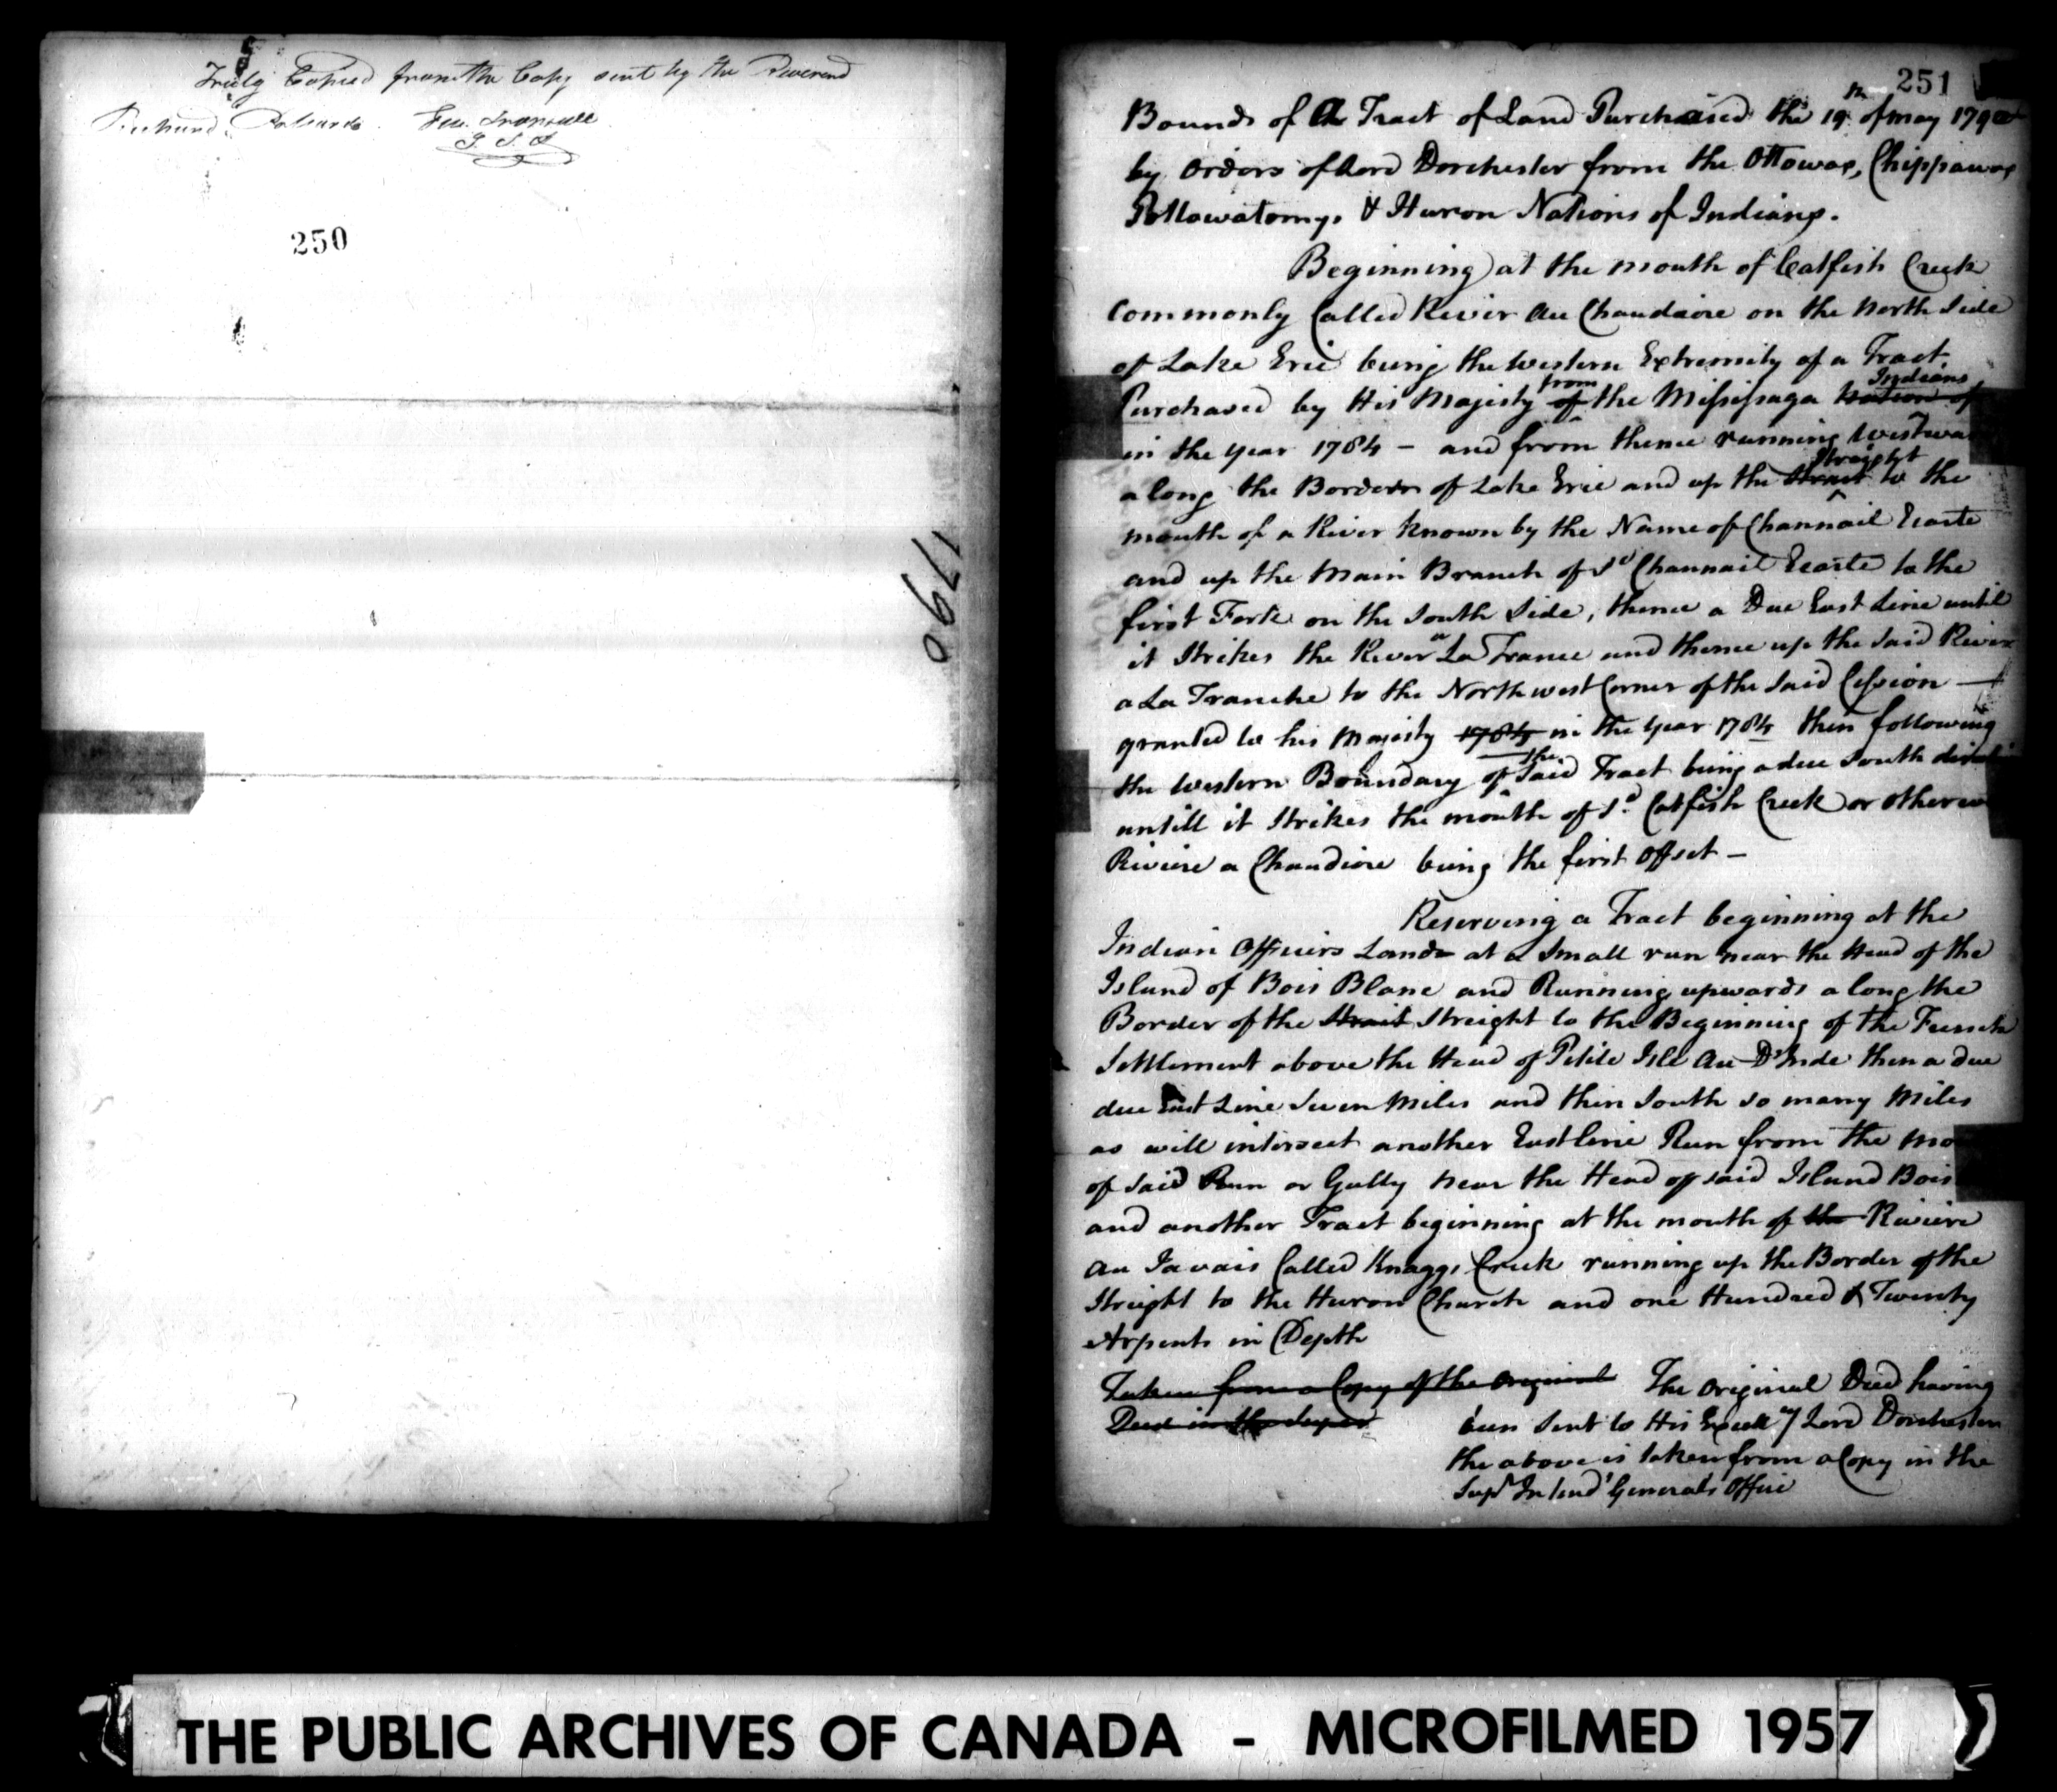 Truly Copied from the Copy sent by the Reverend
Richard Pollard. Geo. Ironside
S. I. A
250
1790
251
Bounds of A Tract of Land Purchaised the 19th of may 1790
by orders of Lord Dorchester from the Ottowas, Chippawas
Pottowatomys & Huron Nations of Indians.
Beginning at the mouth of Catfish Creek
Commonly Called River au Chaudiore on the North Side
of Lake Erie being the Western Extremity of a Tract
Purchased by His Majesty of from the Missisaga Nation of Indians
in the year 1784 – and from thence running Westward
along the Borders of Lake Erie and up the Strait Streight to the
mouth of a River known by the Name of Channail Ecarte
and up the Main Branch of Sd Channail Ecarte to the
first Fork on the South Side, thence a Due East Line until
it Strikes the River a La Trance and thence up the Said River
a La Tranche to the Northwest Corner of the Said Cession —
granted to his Majesty 1784 in the year 1784 then following
the Western Boundary of the Said Tract being a due South
untill it Strikes the mouth of Sd. Catfish Creek or
Riviere a Chaudiore being the first Offset –
Reserving a Tract beginning at the
Indian Officers Lands at a Small run near the Head of the
Island of Bois Blanc and Running upwards along the
Border of the Strait Streight to the Beginning of the French
Settlement above the Head of Petite Isle Au D'Inde then a due
due East Line Seven Miles and then South so many Miles
as will intersect another East line Run from the
of Said Run or Gully near the Head of said Island Bois
and another Tract beginning at the mouth of the Riviere
au Javais Called Knaggs Creek running up the Border of the
Streight to the Huron Church and one Hundred & Twenty
Arpents in Depth
Taken from a Copy of the Original The Original Deed having
Deed in the been Sent to His Excelly Lord Dorchester
the above is taken from a Copy in the
Supt Intend Generals Office
THE PUBLIC ARCHIVES OF CANADA - MICROFILMED 1957